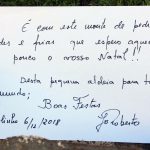 É com este monte de pedr
des e frias que espero aquec
pouco o nosso Natal!!
Desta pequena aldeia para to
mundo;
Boas Festas
linho 6/12/2018
Roberto